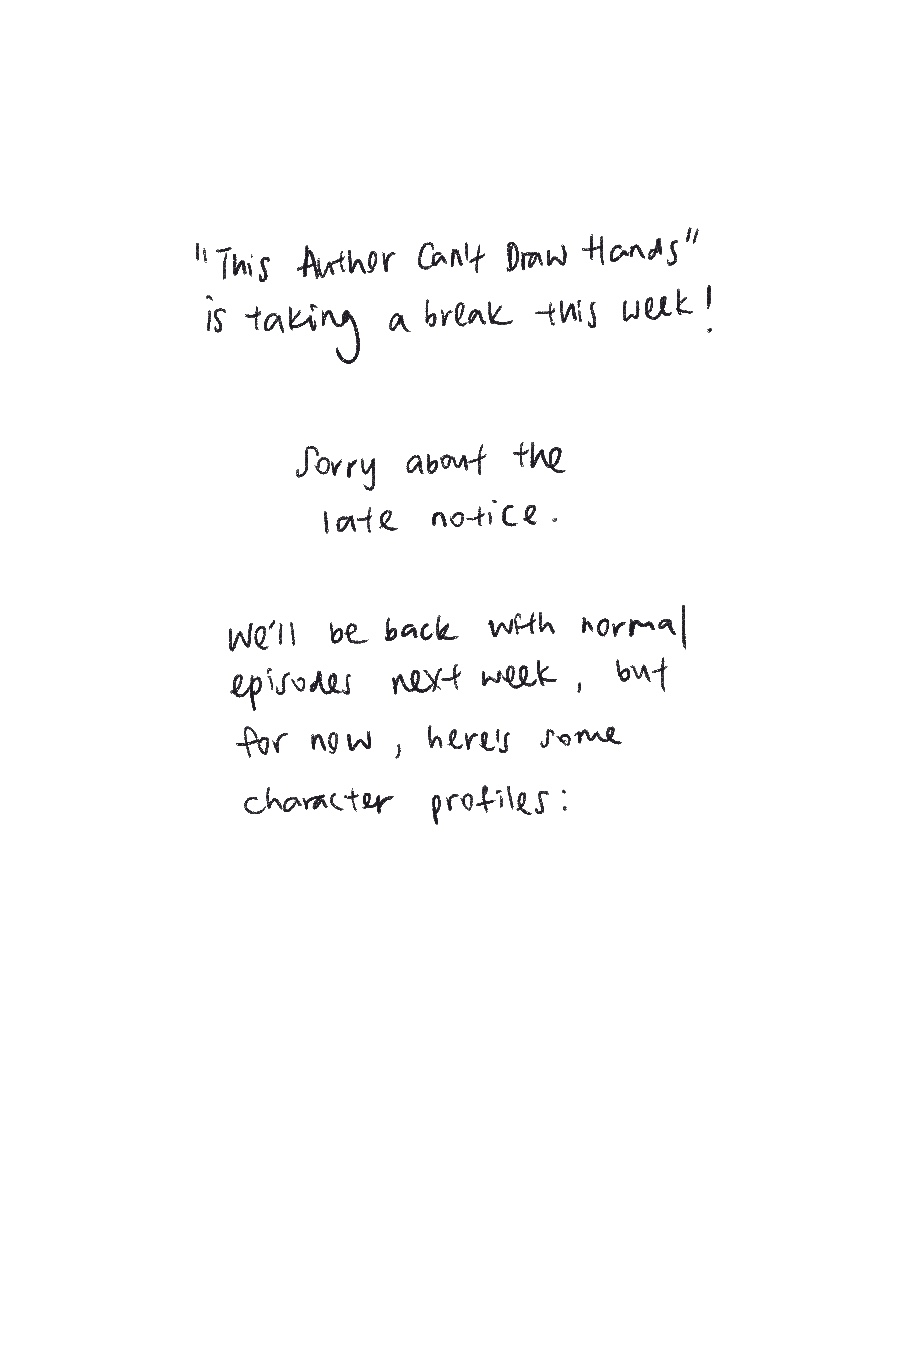 "This Author Can't Draw Hands"
is taking a break this week!
Sorry about the
late notice.
We'll be back with normal
episodes next week, but
for now, here's some
character profiles: